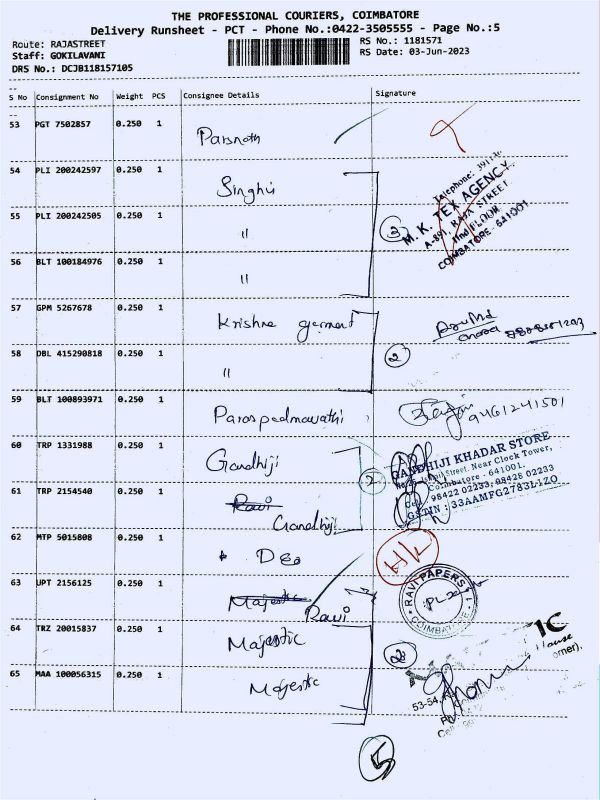 THE PROFESSIONAL COURIERS, COIMBATORE
Delivery Runsheet - PCT - Phone No.:0422-3505555 - Page No.:5
Route: RAJASTREET
RS No.: 1181571
Staff: GOKILAVANI
RS Date: 03-Jun-2023
DRS No.: DCJB118157105
S No Consignment No Weight PCS Consignee Details Signature
53 PGT 7502857 0.250 1 Parsnath
54 PLI 200242597 0.250 1 Singhvi
55 PLI 200242505 0.250 1 "
3
M. K. TEX AGENCY
RAJA STREET
IInd FLOOR
COIMBATORE - 641001
56 BLT 100184976 0.250 1 "
57 GPM 5267678 0.250 1 Krishna garment
58 DBL 415290818 0.250 1 "
2
59 BLT 100893971 0.250 1 Paraspadmavathi
9461241501
60 TRP 1331988 0.250 1 Gandhiji
2
GANDHIJI KHADAR STORE
Street, Near Clock Tower,
Coimbatore - 641001.
Cell : 98422 02233, 98428 02233
GSTIN : 33AAMFG2783L1ZO
61 TRP 2154540 0.250 1 Ravi
Gandhiji
62 MTP 5015808 0.250 1 Deo
63 UPT 2156125 0.250 1 Majestic
Ravi
RAVI PAPERS
COIMBATORE
64 TRZ 20015837 0.250 1 Majestic
65 MAA 100056315 0.250 1 Majestic
53-54,
5